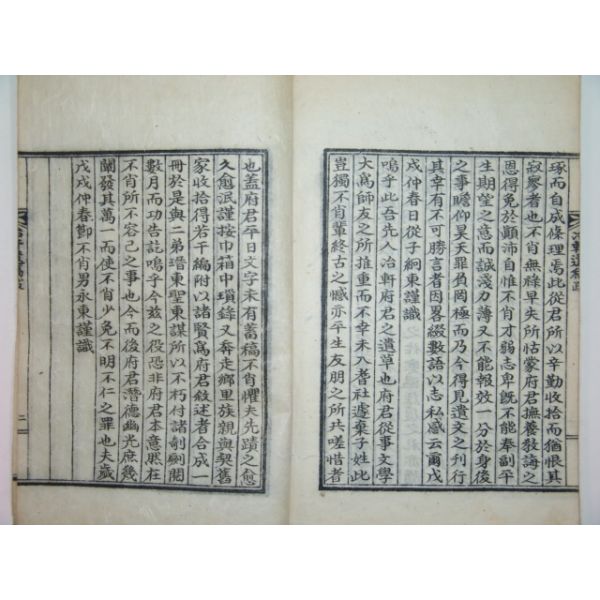 琢而自成條理焉此從君所以辛勤收拾而猶恨其
寂寥者也不肖無祿早失所怙蒙府君撫養敎誨之
恩得免於顚沛自惟不肖才弱志卑旣不能奉副平
生期望之意而誠淺力薄又不能報效一分於身後
之事瞻仰昊天罪負罔極而乃今得見遺文之刊行
其幸有不可勝言者因畧綴數語以志私感云爾戊
戌仲春日從子絅東謹識
嗚乎此吾先人冶軒府君之遺草也府君從事文學
大爲師友之所推重而不幸未入耆社遽棄子姓此
豈獨不肖輩終古之憾亦平生友朋之所共嗟惜者
也盖府君平日文字未有蓄稿不肖懼夫先蹟之愈
久愈泯謹按巾箱中瑣錄又奔走鄉里族親與契舊
家收拾得若干編附以諸賢爲府君敘述者合成一
冊於是與二弟瑨東聖東謀所以不朽付諸剞劂閱
數月而功告訖嗚乎今玆之役恐非府君本意然在
不肖所當爲者不過此事也今而後府君潛德幽光庶幾
闡發其萬一而使不肖少免不明不仁之罪也夫歲
戊戌仲春節不肖男永東謹識
二